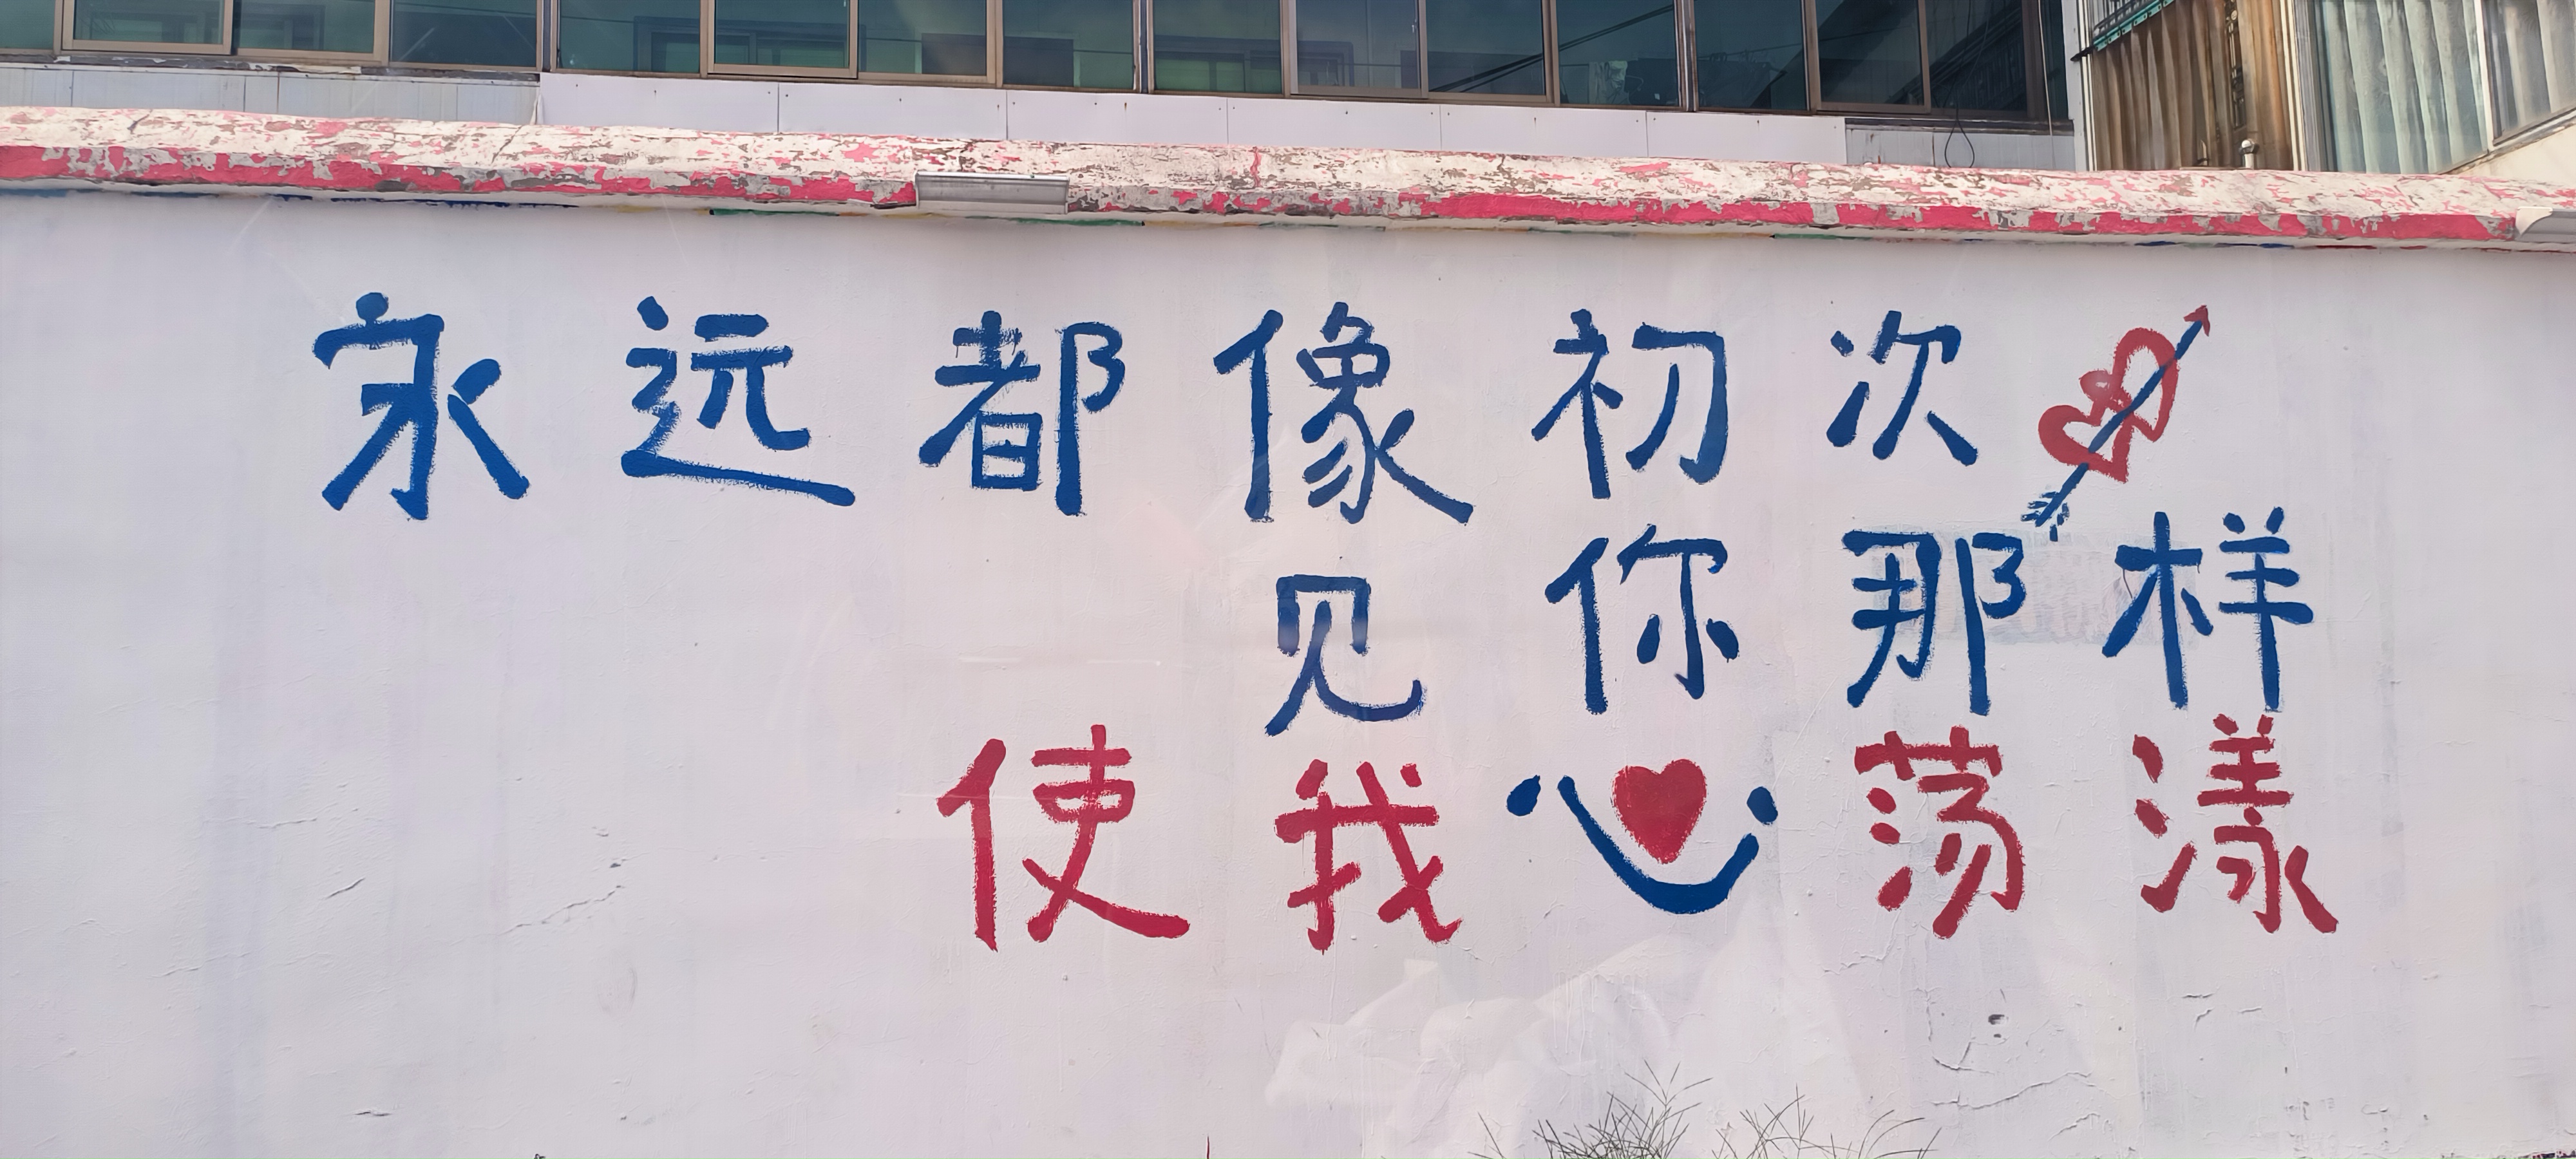 永远都像初次
见你那样
使我心荡漾